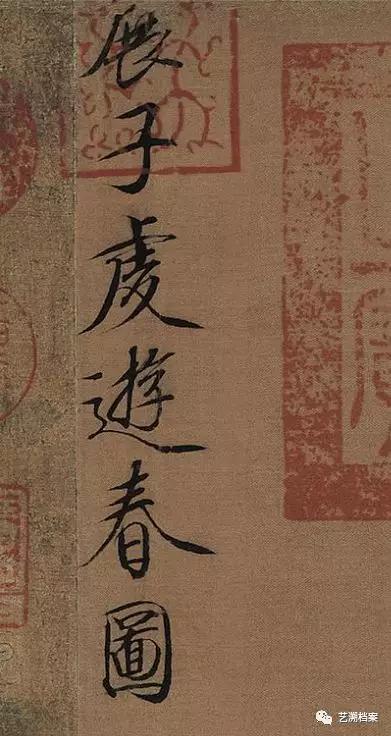 展子虔遊春圖
艺溯档案